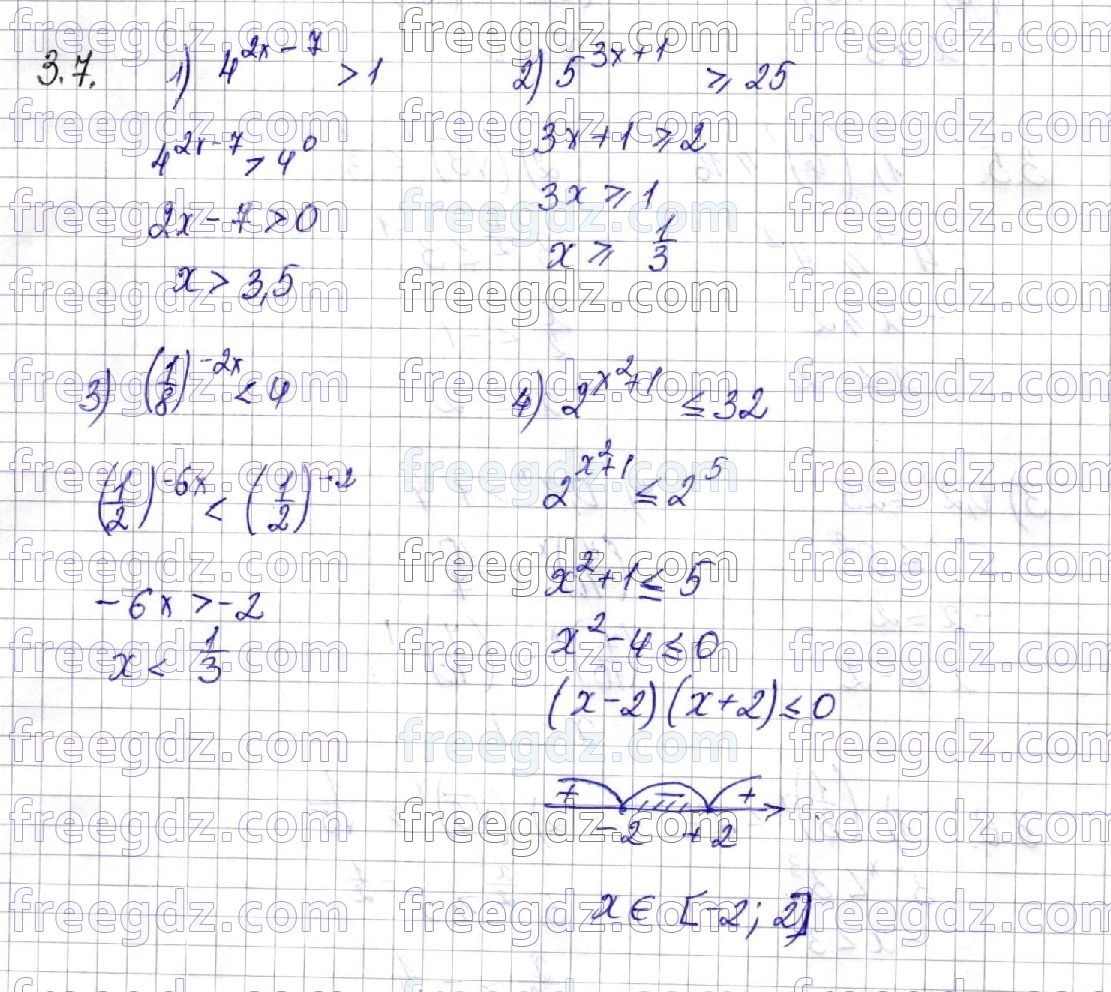 3.7. 1) 4^{2x-7} > 1
4^{2x-7} > 4^0
2x - 7 > 0
x > 3,5
2) 5^{3x+1} ≥ 25
3x+1 ≥ 2
3x ≥ 1
x ≥ 1/3
3) (1/8)^{-2x} < 4
(1/2)^{-6x} < (1/2)^{-2}
-6x > -2
x < 1/3
4) 2^{x^2+1} ≤ 32
2^{x^2+1} ≤ 2^5
x^2+1 ≤ 5
x^2-4 ≤ 0
(x-2)(x+2) ≤ 0
+ − +
-2 +2
x ∈ [-2; 2]
freegdz.com